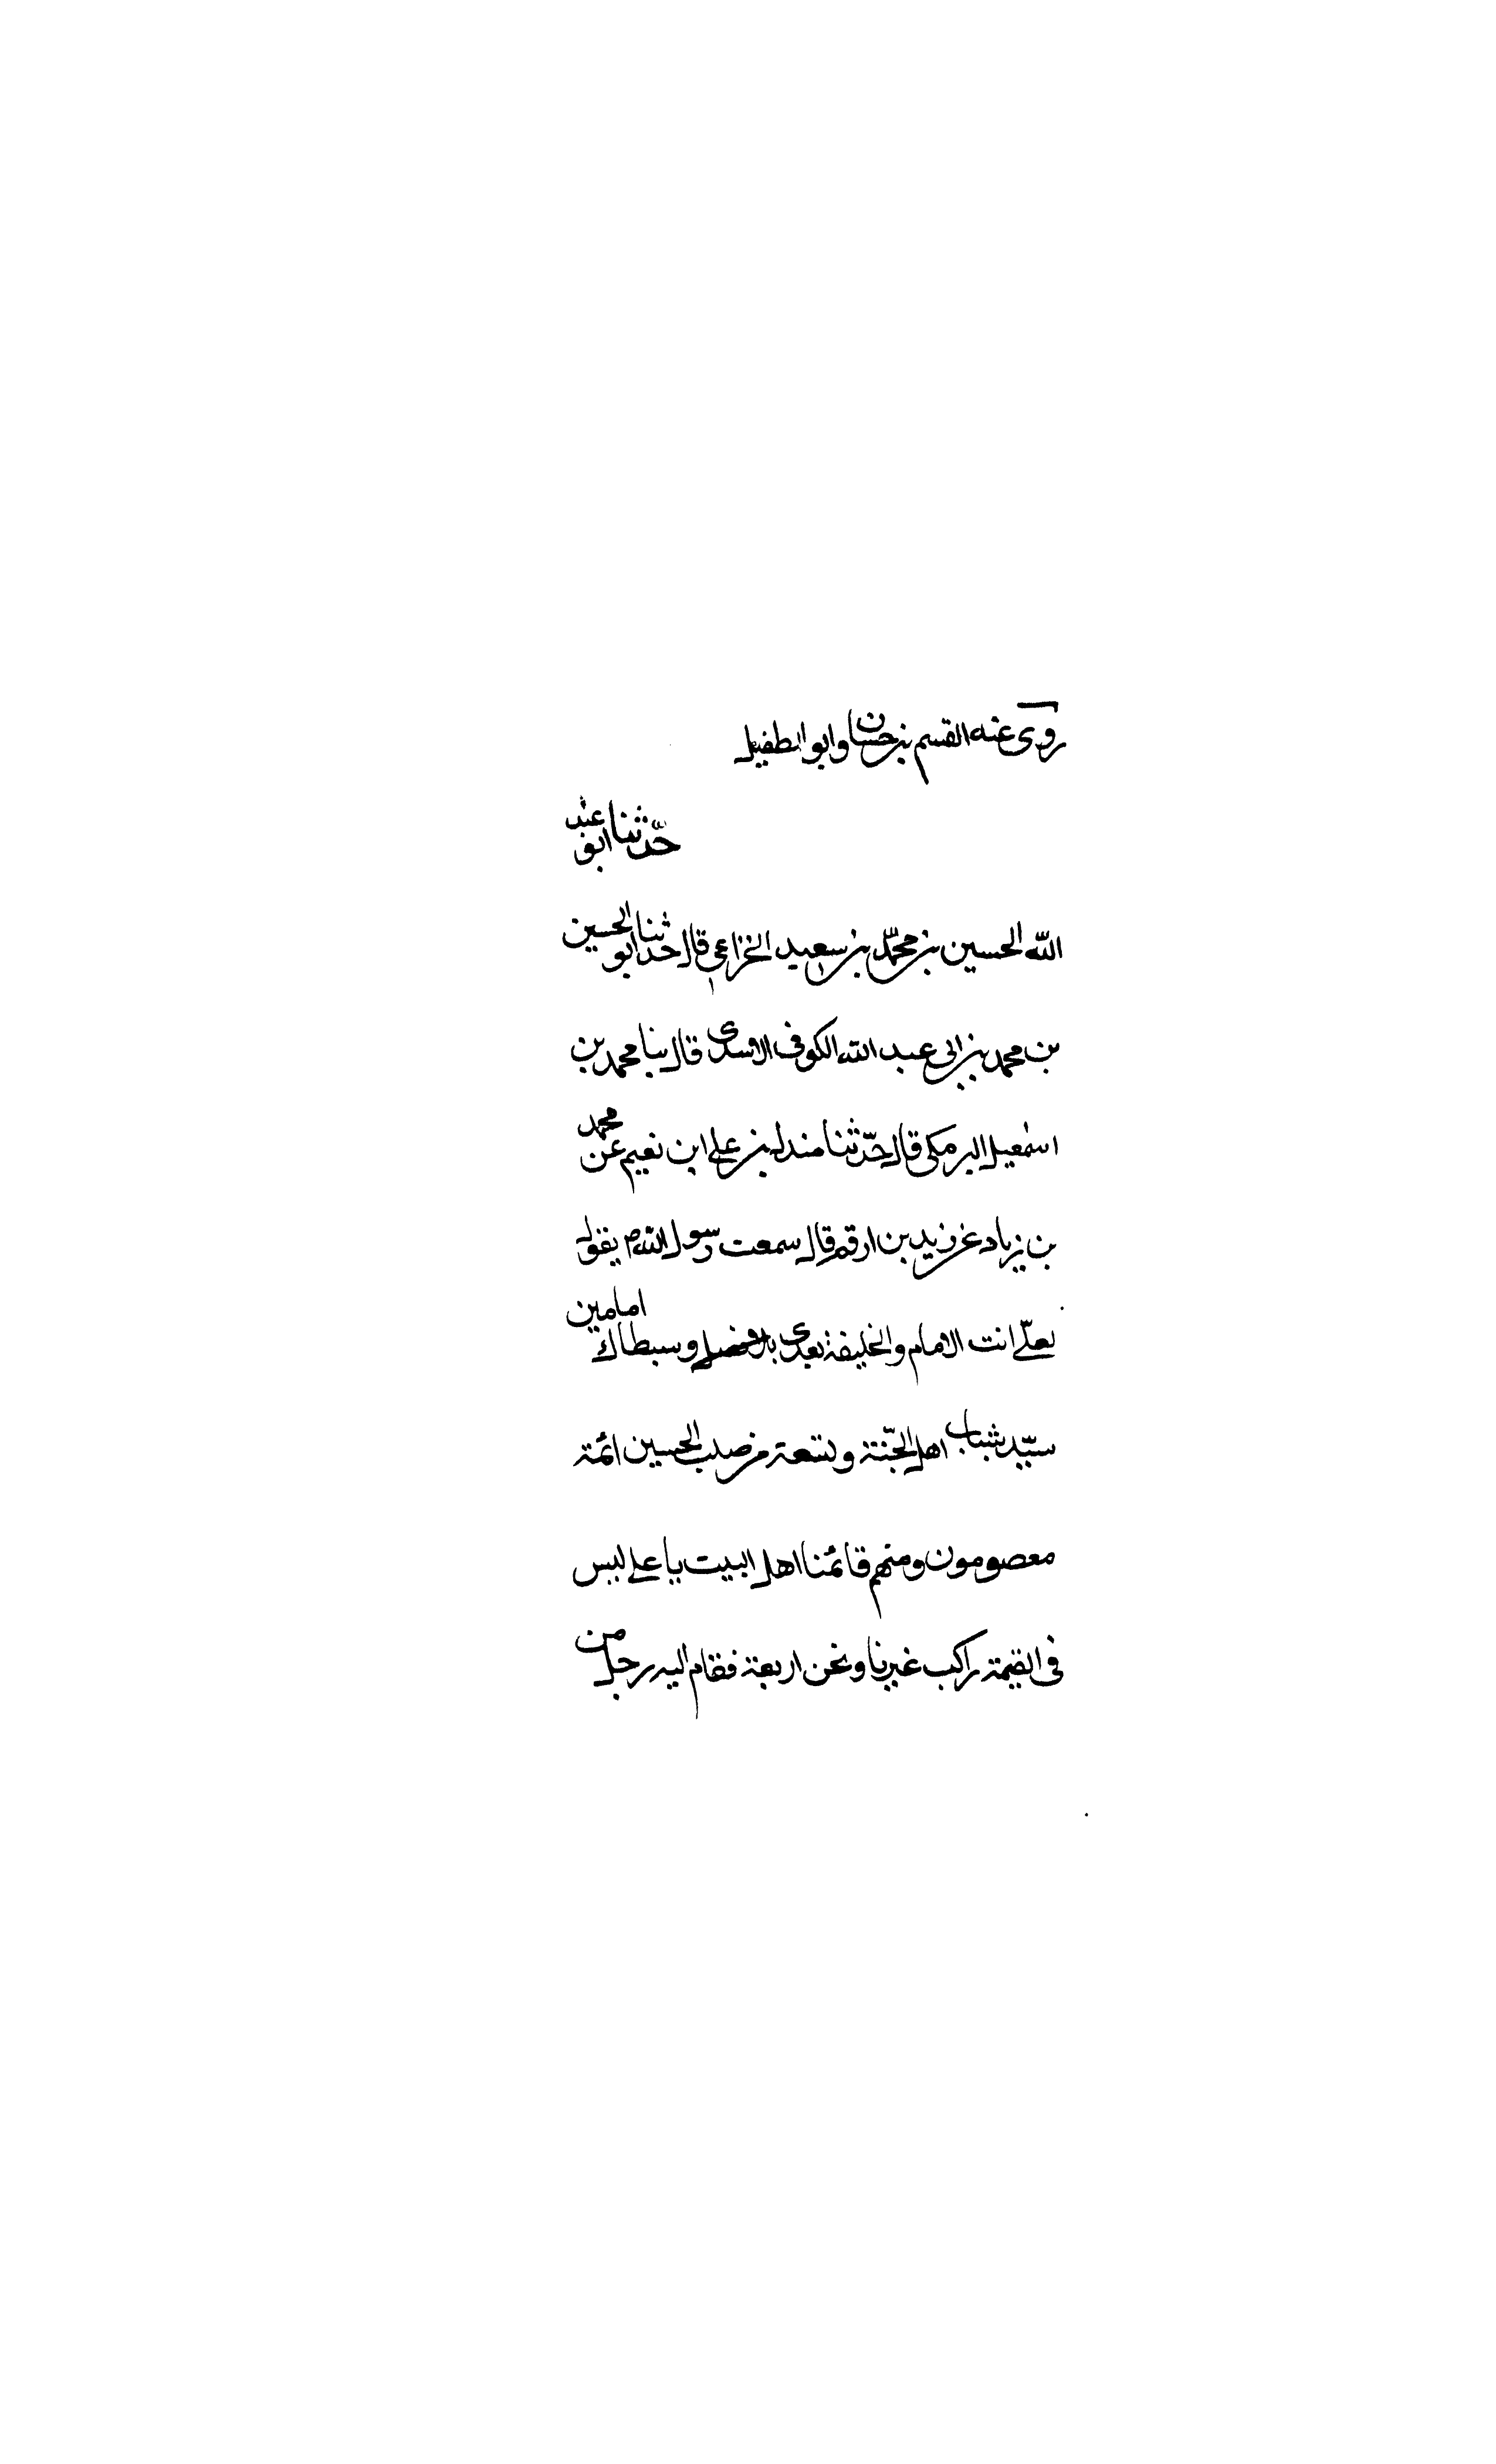 روى عنه القسم بن حسان وابو الطفيل
حدّثنا ابو عبد
الله الحسين بن محمّد بن سعيد الخزاعي قال حدثنا ابو الحسين
بن محمد بن ابى عبد الله الكوفى الاسدى قال بنا محمد بن
اسمعيل البرمكى قال حدّثنا مندل بن على ابن نعيم عن محمد
بن زياد عن زيد بن ارقم قال سمعت رسول الله م يقول
لعلىّ انت الامام والخليفة بعدى وسبطاك امامين
سيّد شباب اهل الجنّة وتسعة من صلب الحسين ائمة
معصومون ومنهم قائمنا اهل البيت يا على ليس
فى القيمة راكب غيرنا ونحن اربعة فقام اليه رجل من